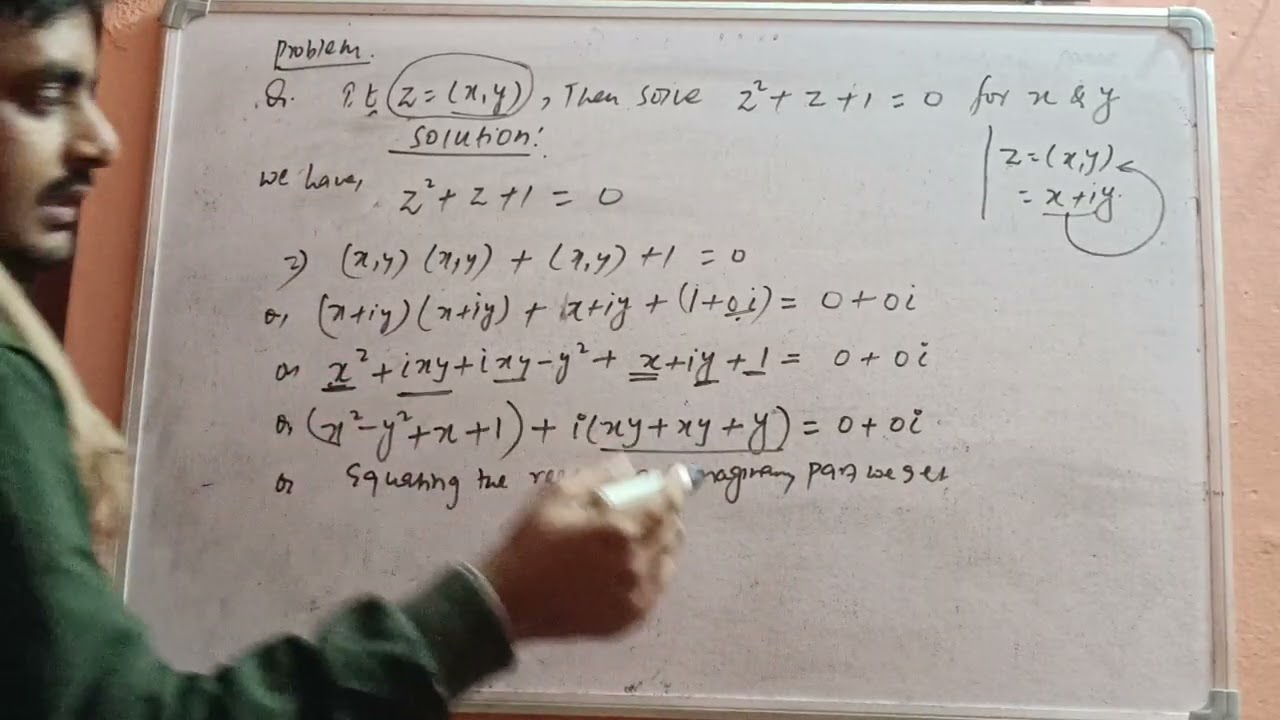 Problem.
Q. If z = (x,y), Then solve z² + z + 1 = 0 for x & y
Solution:
z = (x,y)
= x + iy.
we have,
z² + z + 1 = 0
⇒ (x,y) (x,y) + (x,y) + 1 = 0
or, (x+iy) (x+iy) + x+iy + (1+0i) = 0 + 0i
or x² + ixy + ixy - y² + x + iy + 1 = 0 + 0i
or, (x² - y² + x + 1) + i(xy + xy + y) = 0 + 0i
or Equating the part we get